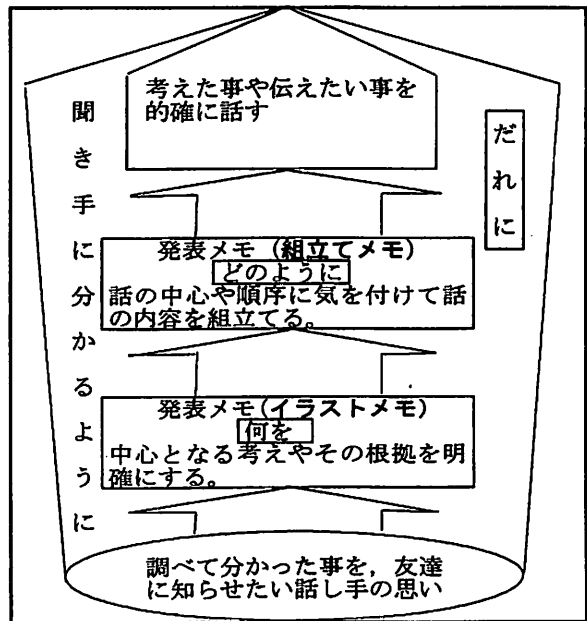 考えた事や伝えたい事を
的確に話す
聞き手に分かるように
だれに
発表メモ(組立てメモ)
どのように
話の中心や順序に気を付けて話
の内容を組立てる。
発表メモ(イラストメモ)
何を
中心となる考えやその根拠を明
確にする。
調べて分かった事を，友達
に知らせたい話し手の思い